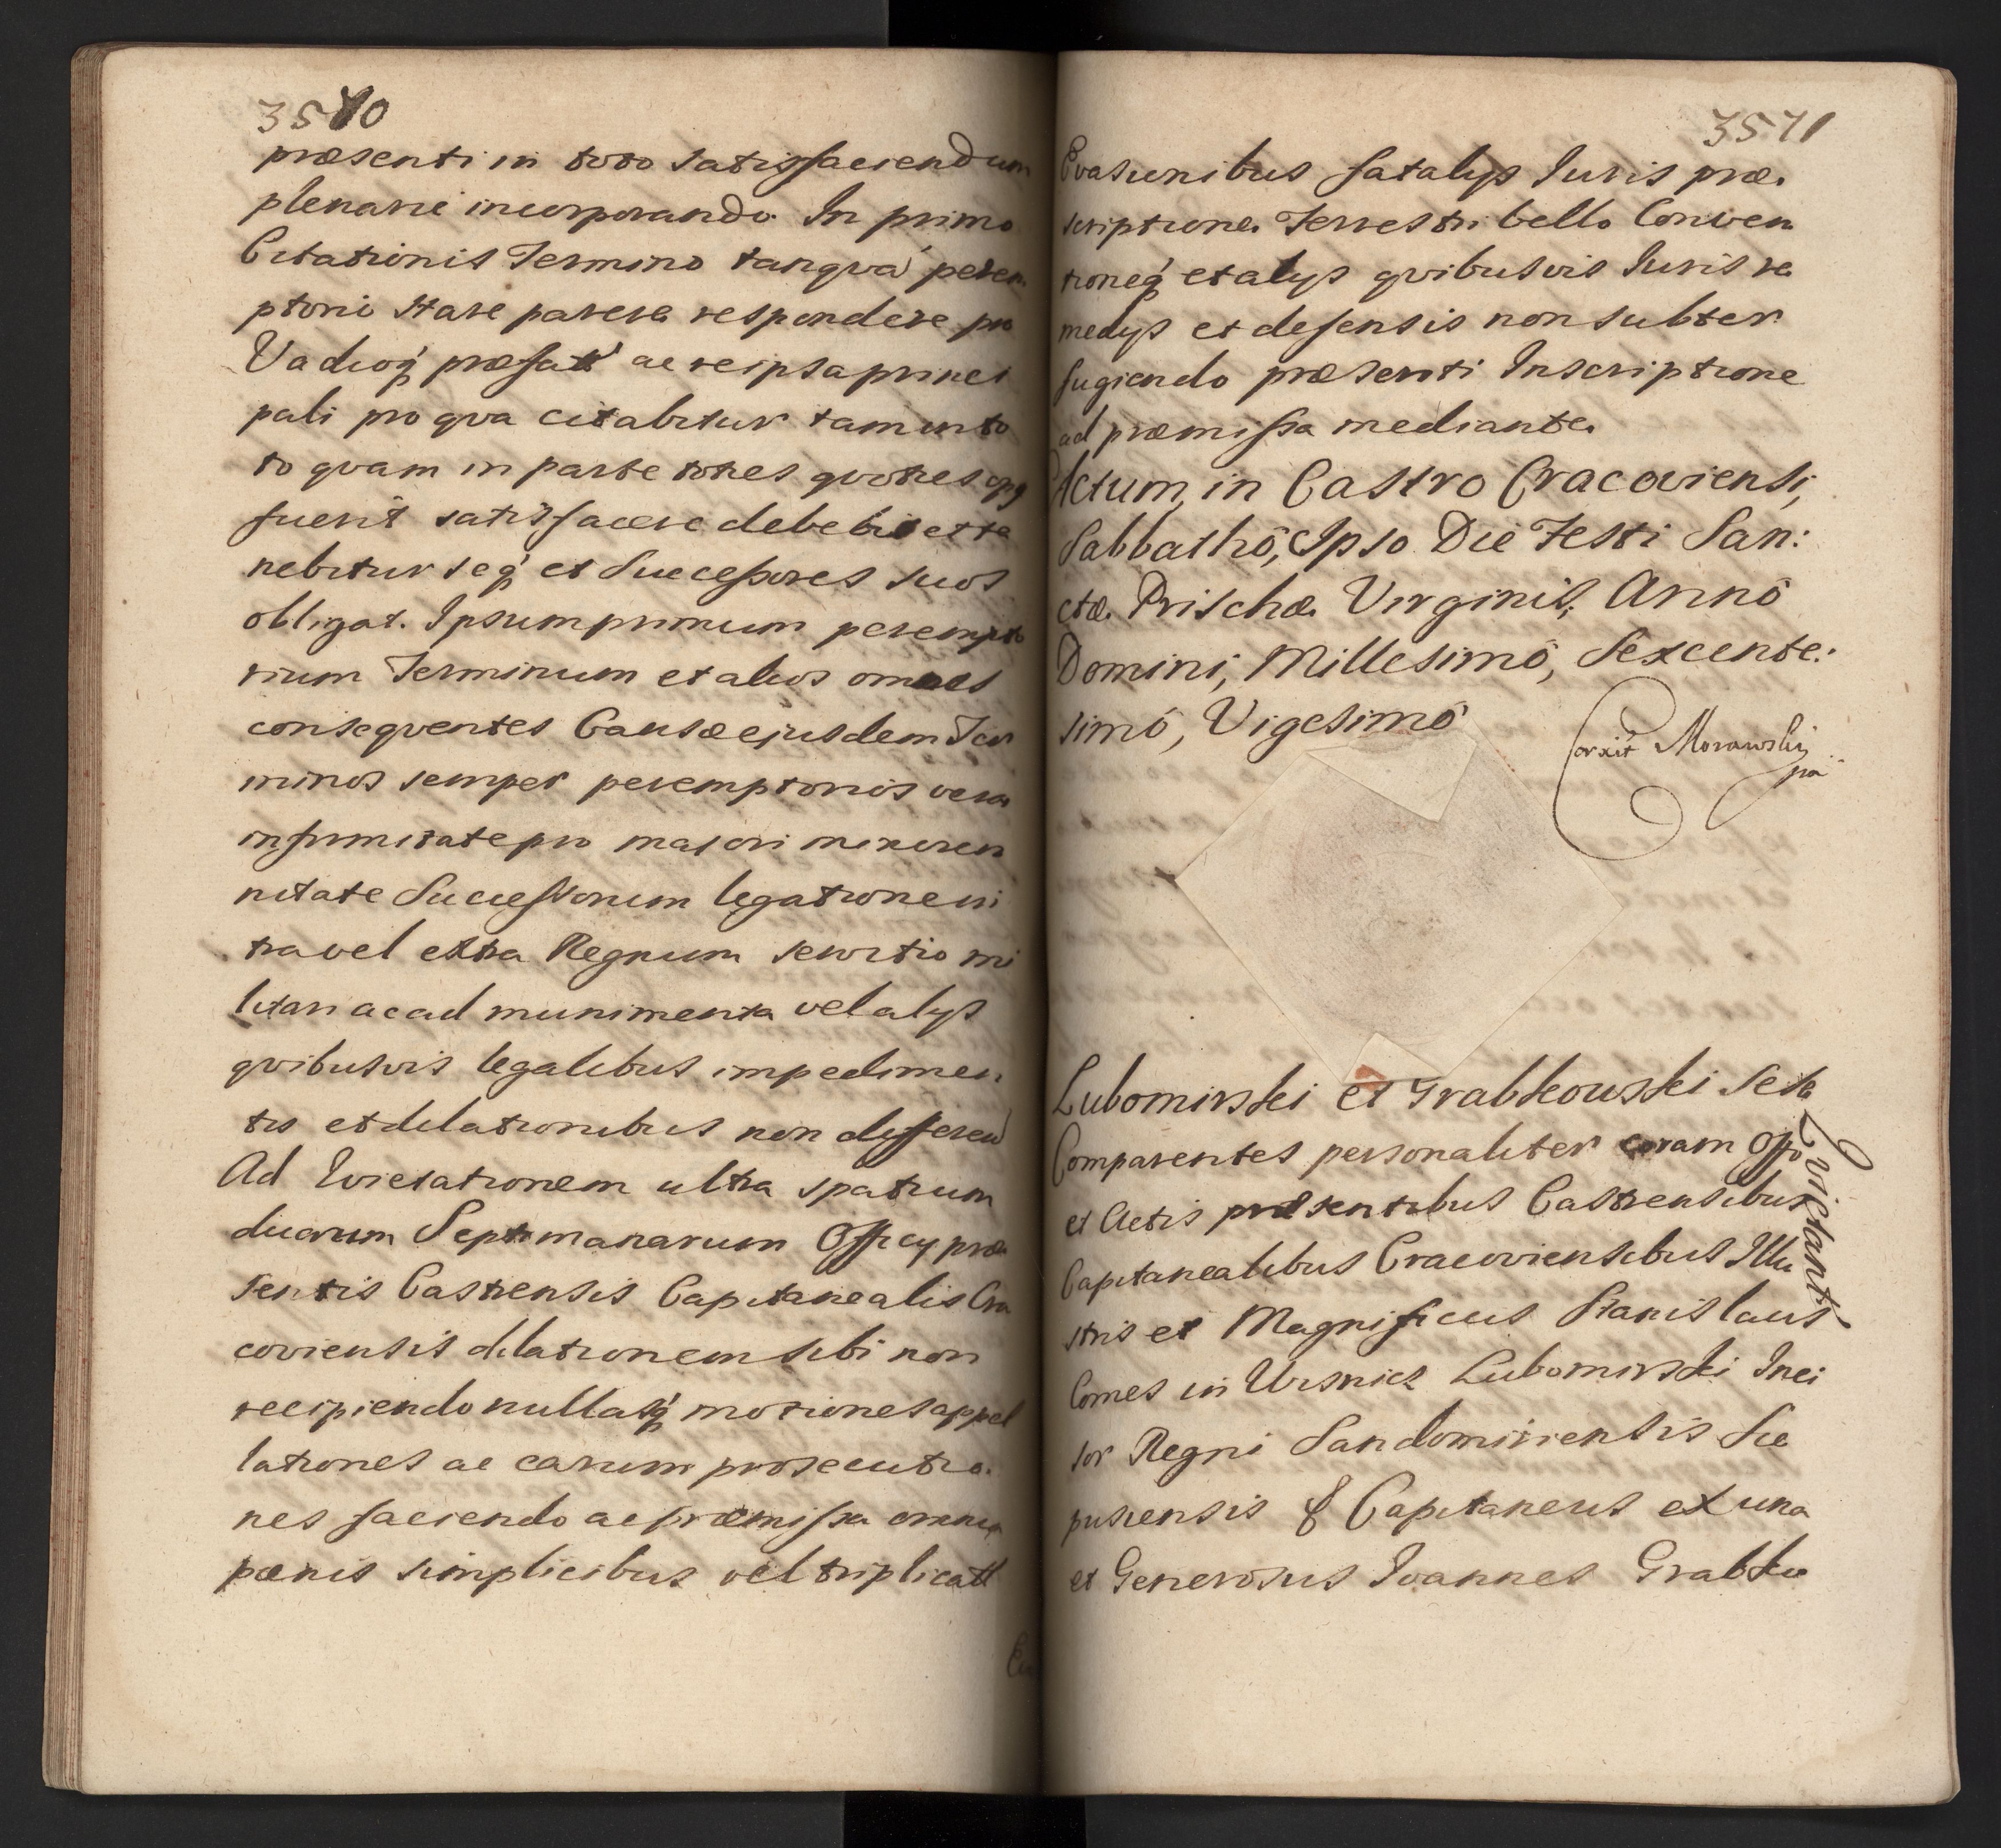 3570
præsenti in toto satisfaciendum
plenarie incorporando. In primo
Citationis Termino tanqvã perem
ptorio stare parere respondere pro
Vadioq́ præfato ac re ipsa princi
pali pro qva citabitur tam in to
to qvam in parte toties qvoties opq
fuerit satisfacere debebit et te
nebitur seq́ et Successores suos
obligat. Ipsum primum perempto
rium Terminum et alios omnes
conseqventes Causæ ejusdem Ter
minos semper peremptorios vera
infirmitate pro majori minoren
nitate Successorum legatione in
tra vel extra Regnum servitio mi
litari ac ad munimenta vel alys
qvibusvis legalibus impedimen
tis et dilationibus non differend
Ad Evictationem ultra spatium
duarum Septimanarum Officy præ
sentis Castrensis Capitanealis Cra
coviensis dilationem sibi non
recipiendo nullasq́ motiones appel
lationes ac earum prosecutio
nes faciendo ac præmissa omnia
pænis simplicibus vel triplicatt
3571
Evasionibus fatalys Iuris præ
scriptione Terrestri bello Conven
tioneq́ et alys qvibusvis Iuris re
medys et defensis non subter
fugiendo præsenti Inscriptione
ad præmissa mediante.
Actum, in Castro Cracoviensi,
Sabbathô, Ipso Die Festi San:
ctæ Prischæ Virginis, Annô
Domini, Millesimô, Sexcente:
simô, Vigesimô
Corxit Morawsky
pa
Lubomirski et Grabkowski Sese
Evictant
Comparentes personaliter coram Offo
et Actis præsentibus Castrensibus
Capitanealibus Cracoviensibus Illu
stris et Magnificus Stanislaus
Comes in Wisnicz Lubomirski Inci
sor Regni Sandomiriensis Sce
pusiensis & Capitaneus ex una
et Generosus Ioannes Grabko